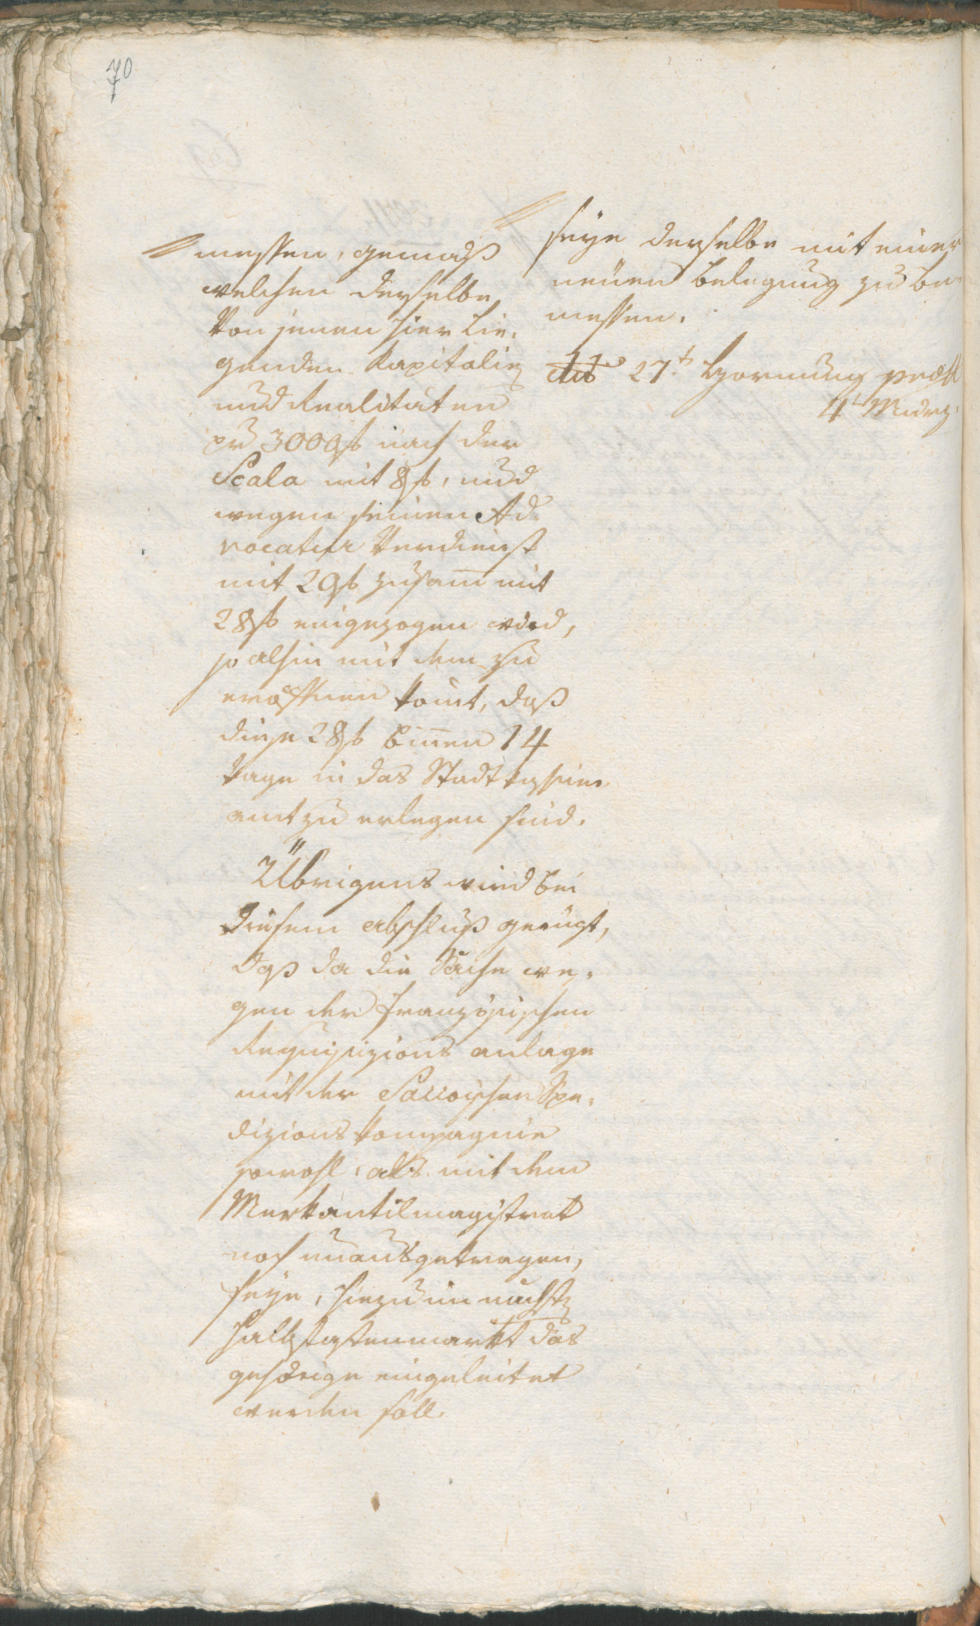 70
messen, gemäß
welchen derselbe
von jenen hier lie,
genden Kapitalien
und Realitäten
pr 3000f nach der
Scala mit 8f, und
wegen seinen Ad,
vocatur Verdienst
mit 20f zusam̅ mit
28f eingezogen wird,
so alhin mit dem zu
eröffnen kom̅t, daß
diese 28f bin̅en 14
Tage in das Stadtkassier
amt zu erlegen sind.
Übrigens wird bei
diesem Abschluß gerügt,
daß da die Sache we,
gen der französischen
Requisizions anlage
mit der Spe,
dizions Kompagnie
sowohl, als mit dem
Merkantilmagistrat
noch unausgetragen,
seye, hiezu im nächsten
Halbfastenmarkt das
gehörige eingeleitet
werden soll.
seye derselbe mit einer
neuen Belegung zu be
messen.
dto 27t Hornung
4t